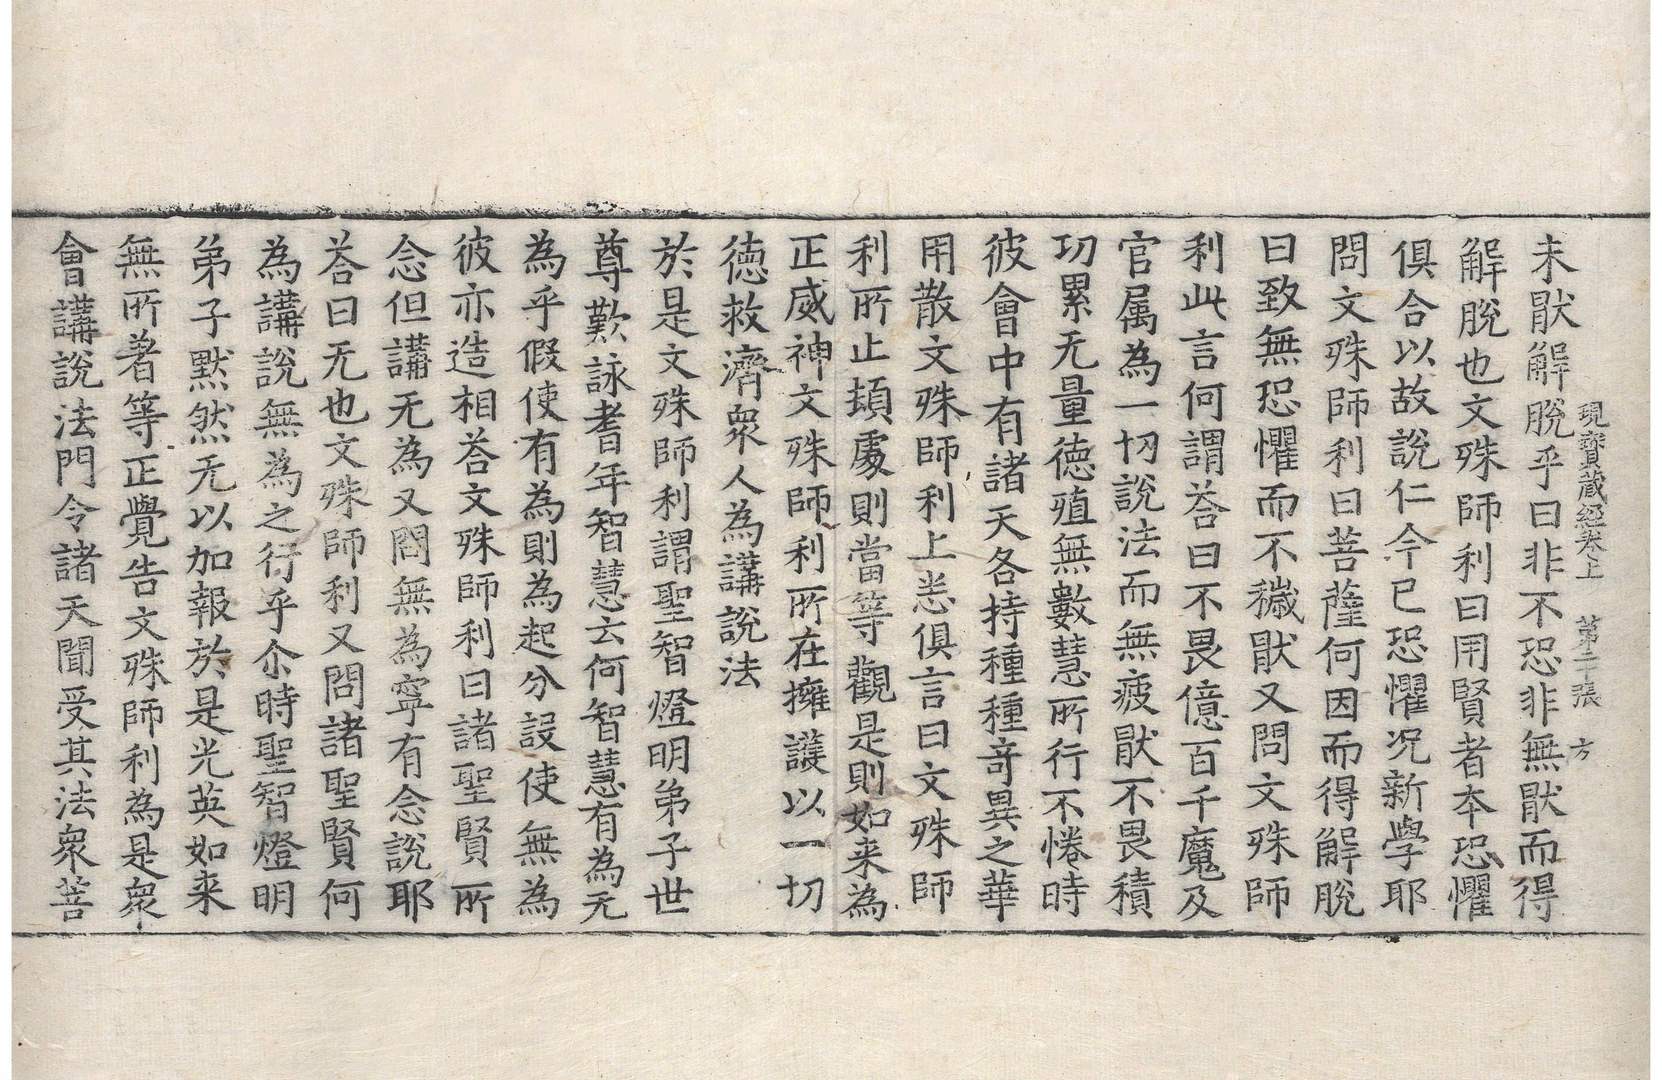 現寶藏經卷上 第二十張 方
未猒解脫乎曰非不恐非無猒而得
解脫也文殊師利曰用賢者本恐懼
俱合以故說仁今已恐懼况新學耶
問文殊師利曰菩薩何因而得解脫
曰致無恐懼而不穢猒又問文殊師
利此言何謂荅曰不畏億百千魔及
官属為一切說法而無疲猒不畏積
功累无量德殖無數慧所行不惓時
彼會中有諸天各持種種奇異之華
用散文殊師利上悉俱言曰文殊師
利所止頓處則當等觀是則如来為
正威神文殊師利所在擁護以一切
德救濟衆人為講說法
於是文殊師利謂聖智燈明弟子世
尊歎詠耆年智慧云何智慧有為无
為乎假使有為則為起分設使無為
彼亦造相荅文殊師利曰諸聖賢所
念但講无為又問無為寧有念說耶
荅曰无也文殊師利又問諸聖賢何
為講說無為之行乎尒時聖智燈明
弟子默然无以加報於是光英如来
無所著等正覺告文殊師利為是衆
會講說法門令諸天聞受其法衆菩